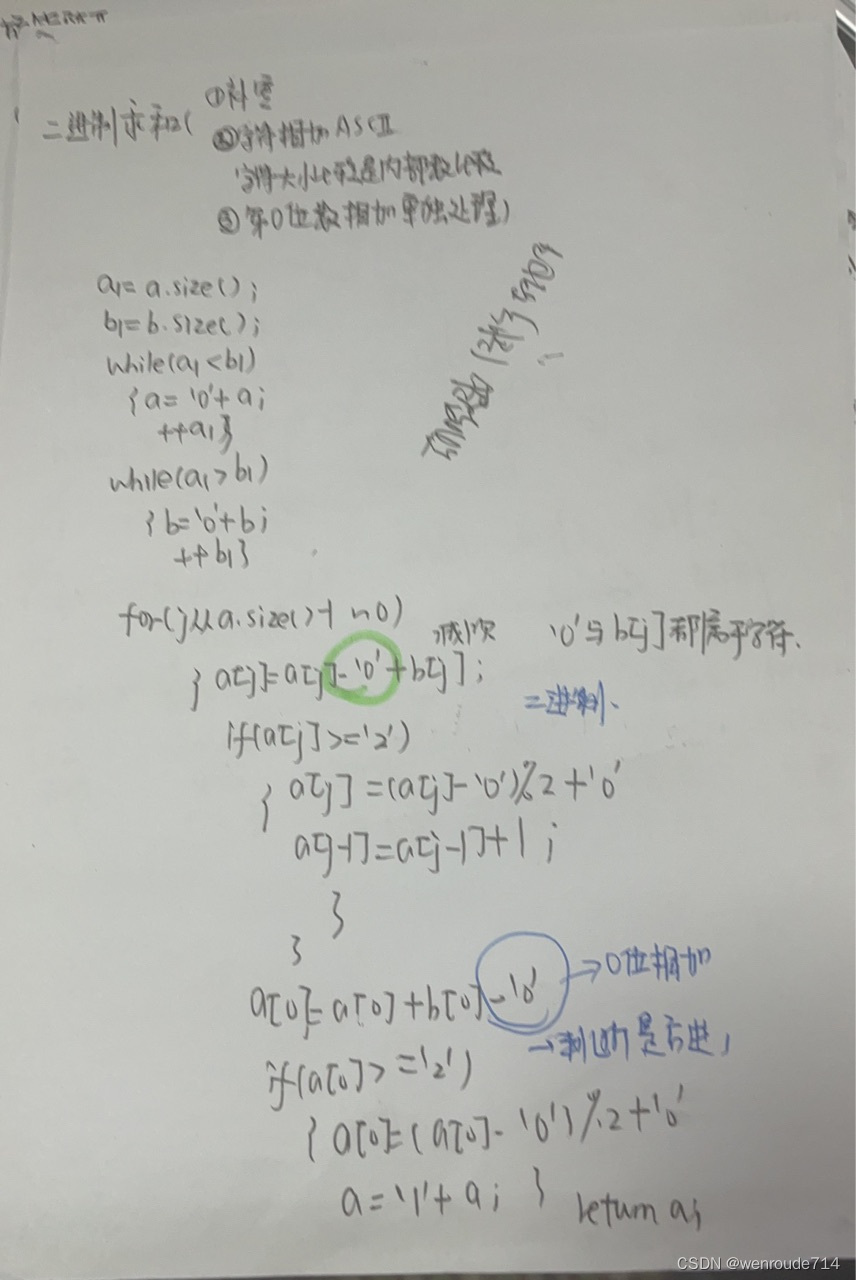 二进制求和( ①补零
②字符相加ASCII
字符大小比较是内部数比较
③第0位数相加单独处理)
a1=a.size();
b1=b.size();
while(a1<b1)
{a='0'+a;
++a1}
while(a1>b1)
{b='0'+b;
++b1}
for(j从a.size()-1 ~>0)
{ a[j]=a[j]-'0'+b[j]; 减1次 '0'与b[j]都属于字符.
if(a[j]>='2') 二进制.
{ a[j]=(a[j]-'0')%2+'0'
a[j-1]=a[j-1]+1;
}
}
a[0]=a[0]+b[0]-'0' →0位相加
→判断是否进1
if(a[0]>='2')
{ a[0]=(a[0]-'0')%2+'0'
a='1'+a; } return a;
CSDN @wenroude714